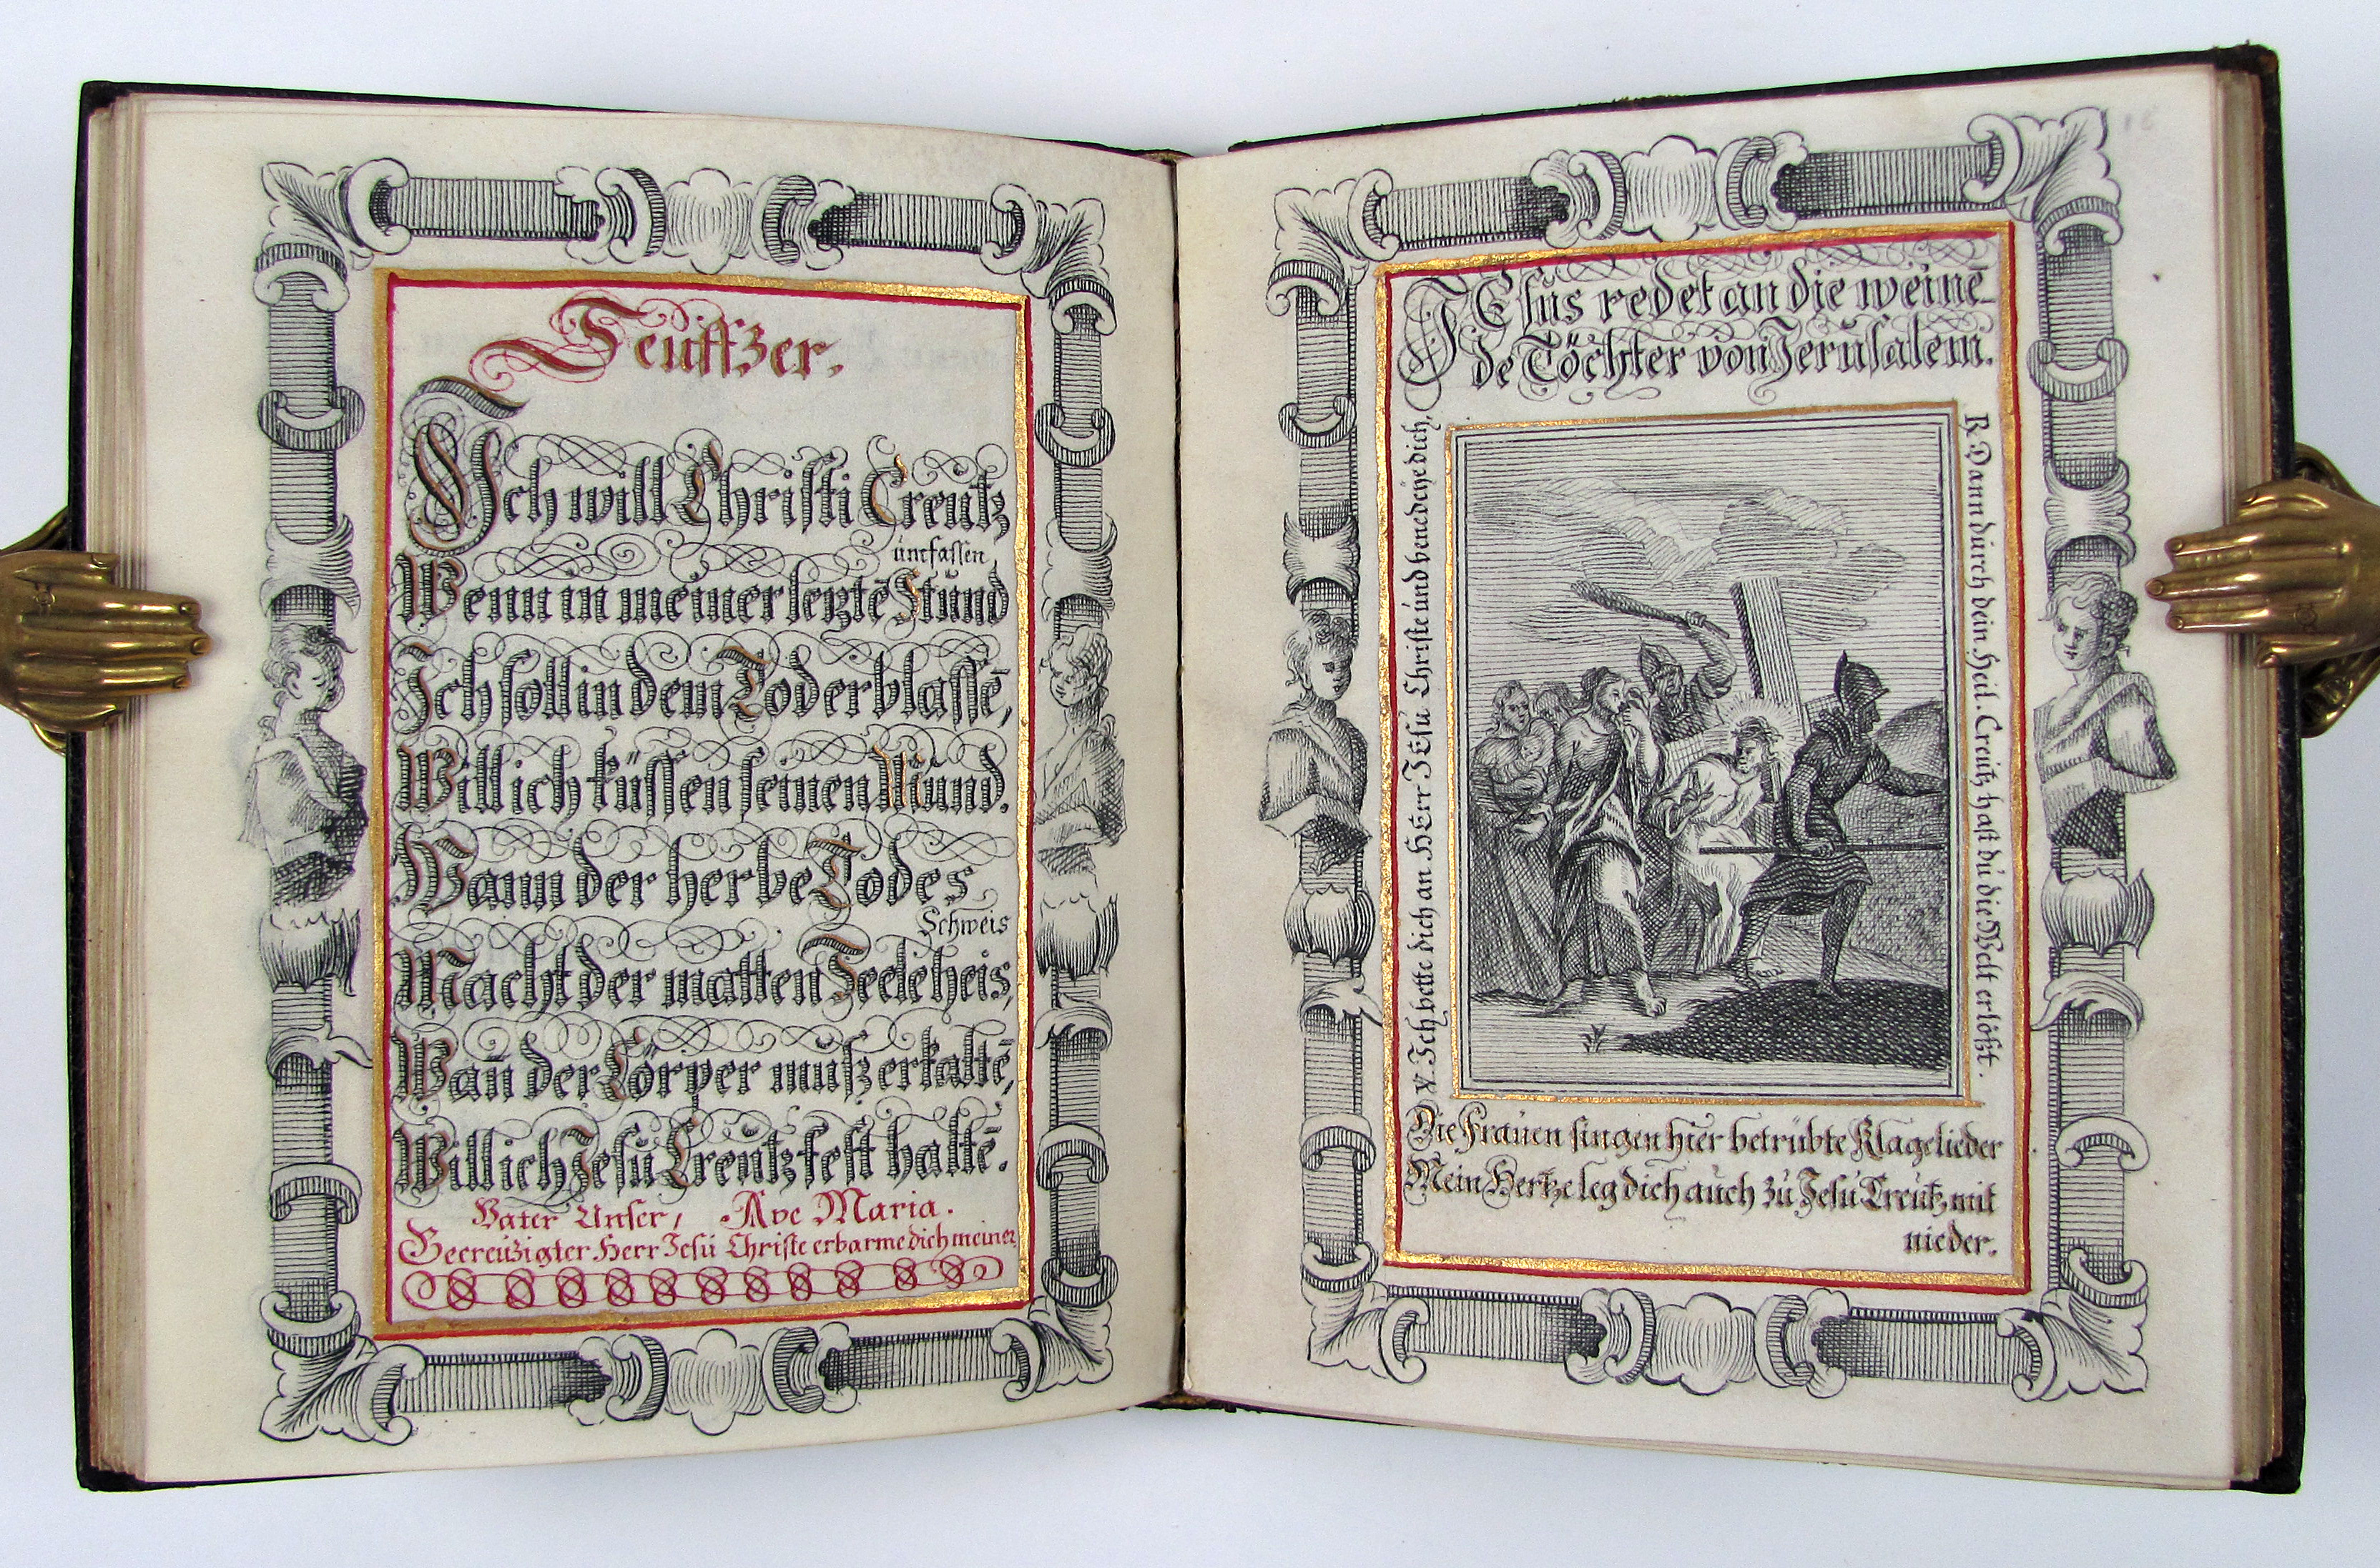 Seuffzer.
Ich will Christi Creutz
umfassen,
Wenn in meiner letztē Stund
Ich soll in dem Tod erblassē,
Will ich küssen seinen Mund.
Wann der herbe Todes
Schweis
Macht der matten Seele heis,
Wan̄ der Cörper muß erkaltē,
Will ich Jesu Creutz fest haltē.
Vater Unser, Ave Maria.
Gecreuzigter Herr Jesu Christe erbarme dich meiner
JEsus redet an die weinē-
de Töchter von Jerusalem.
℣. Ich bette dich an HErr JEsu Christe und benedeÿe dich,
R. Dann durch dein Heil. Creutz hast du die Welt erlößt.
Die Frauen singen hier betrübte Klagelieder
Mein Hertze leg dich auch zu Jesu Creutz mit
nieder.